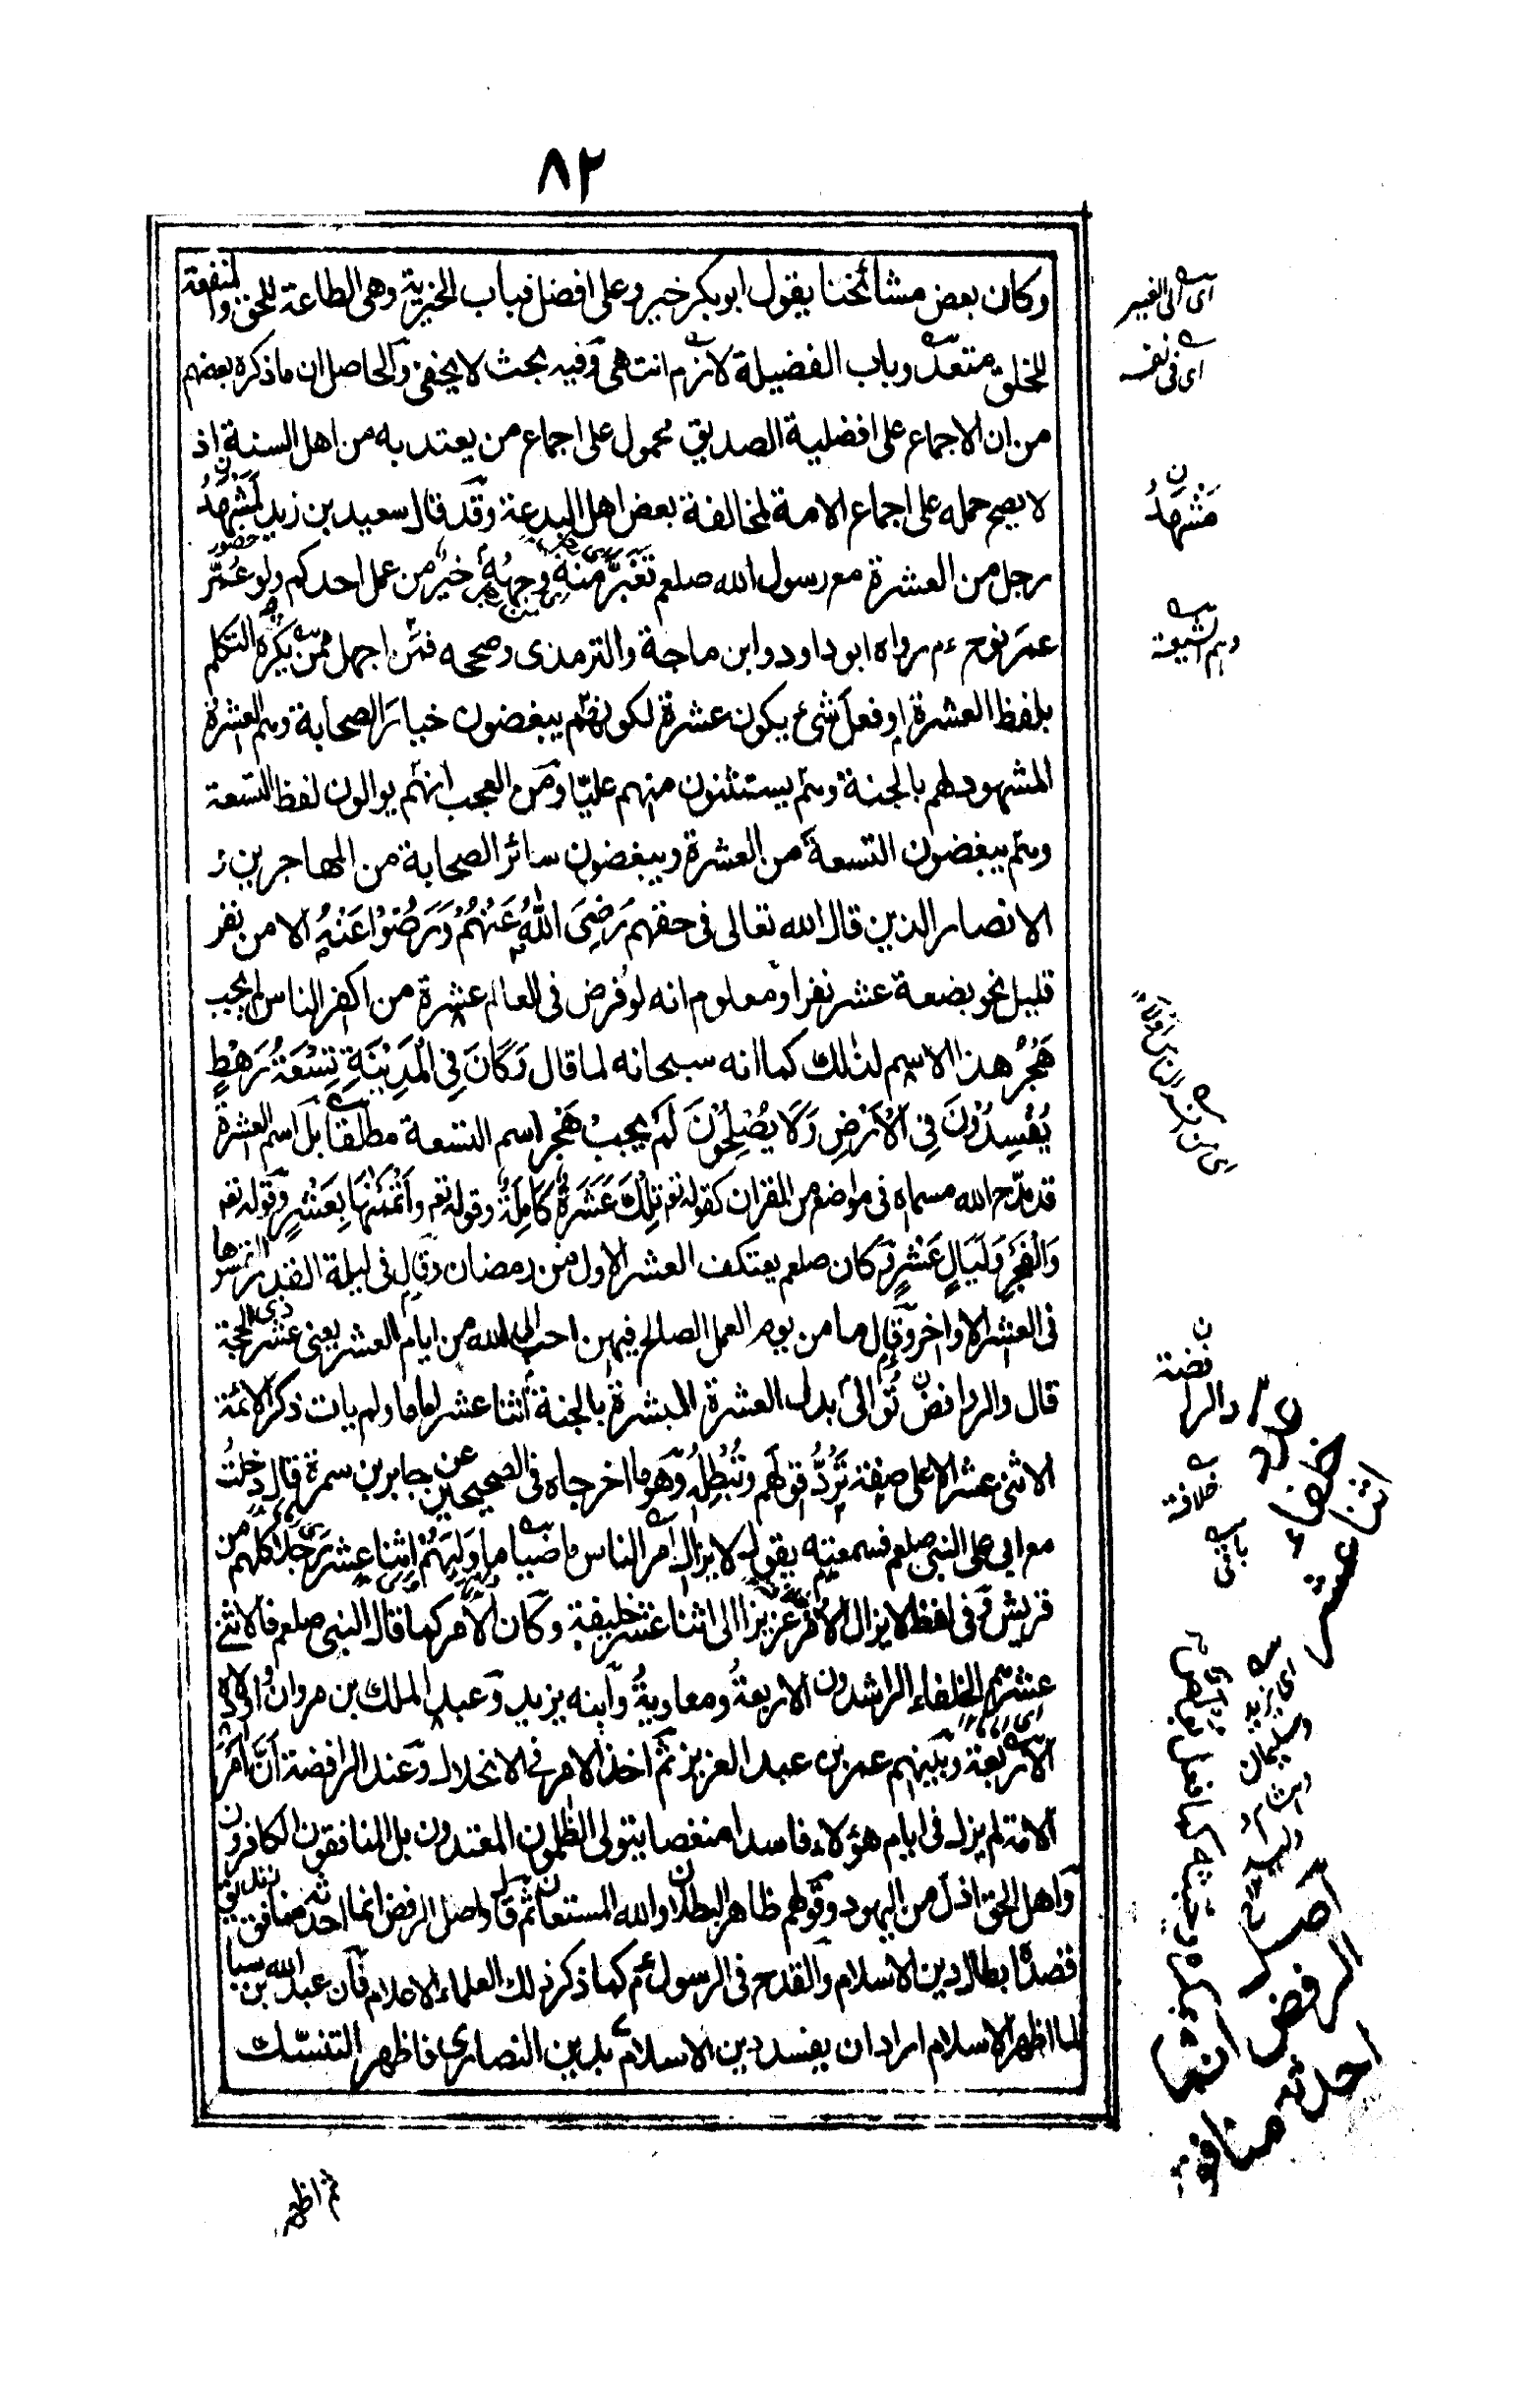 ٨٢
وكان بعض مشائخنا يقول ابو بكر خير وعلى افضل فباب الخيرية وهى الطاعة للحق والمنفعة
للخلق متعدّ وباب الفضيلة لازم انتهى وفيه بحث لا يخفى والحاصل ان ما ذكره بعضهم
من ان الاجماع على افضلية الصديق محمول على اجماع من يعتد به من اهل السنة اذ
لا يصح حمله على اجماع الامة لمخالفة بعض اهل البدعة وقد قال سعيد بن زيد لمَشهدُ
رجل من العشرة مع رسول الله صلعم تغبرّ منه وجهه خير من عمل احدكم ولو عُمّر
عمرَ نوح ءم رواه ابو داود وابن ماجة والترمذى وصححه فمن اجهل ممن يكره التكلم
بلفظ العشرة او فعل شئ يكون عشرة لكونهم يبغضون خيارَ الصحابة وهم العشرة
المشهود لهم بالجنة وهم يستثنون منهم عليّا ومن العجب انهم يوالون لفظ التسعة
وهم يبغضون التسعة من العشرة ويبغضون سائر الصحابة من المهاجرين و
الانصار الذين قال الله تعالى فى حقهم رَضِيَ اللّٰهُ عَنْهُمْ وَرَضُوْا عَنْهُ الا من نفر
قليل نحو بضعة عشر نفرا ومعلوم انه لو فُرض فى العالم عشرة من اكفر الناس لم يجب
هَجْرُ هذا الاسم لذلك كما انه سبحانه لما قال وَكَانَ فِي الْمَدِيْنَةِ تِسْعَةُ رَهْطٍ
يُفْسِدُوْنَ فِي الْاَرْضِ وَلَا يُصْلِحُوْنَ لَمْ يجبْ هَجْر اسم التسعة مطلقا بل اسم العشرة
قد مدح الله مسماه فى مواضع من القران كقوله تعم تِلْكَ عَشَرَةٌ كَامِلَةٌ وقوله تعم وَاَتْمَمْنٰهَا بِعَشْرٍ وقوله تعم
وَالْفَجْرِ وَلَيَالٍ عَشْرٍ وكان صلعم يعتكف العشر الاول من رمضان وقال فى ليلة القدر التمسوها
فى العشر الاواخر وقال ما من يوم العمل الصالح فيهن احب الى الله من ايام العشر يعنى عشر ذى الحجة
قال والروافض تُوالى بدل العشرة المبشرة بالجنة اثنا عشر اماما ولم يات ذكر الائمة
الاثنى عشر الا على صفة تَرُدُّ قولهم وتُبْطِلُه وهو ما اخرجاه فى الصحيحين عن جابر بن سمرة قال دخلتُ
مع ابى على النبى صلعم فسمعته يقول لا يزال امر الناس ماضيا ما وَلِيَهُمْ اثنا عشر رجلا كلهم من
قريش وفى لفظ لا يزال الامر عزيزا الى اثنا عشر خليفة وكان الامر كما قال النبى صلعم فالاثنى
عشر هم الخلفاء الراشدون الاربعةُ ومعاويةُ وابنه يزيد وعبد الملك بن مروان واولاده
الاربعة وبينهم عمر بن عبد العزيز ثم اخذ الامر فى الانحلال وعند الرافضة انّ امرَ
الامة لم يزل فى ايام هؤلاء فاسدا منغصا يتولى الظلمون المعتدون بل المنافقون الكافرون
واهل الحق اذل من اليهود وقولهم ظاهر البطلان والله المستعان ثم قال واصل الرفض انما احدثه منافق زنديق
قصدُه ابطال دين الاسلام والقدح فى الرسول ءم كما ذكر ذلك العلماء الاعلام فان عبد الله بن سبا
لما اظهر الاسلام اراد ان يفسد دين الاسلام بدين النصارى فاظهر التنسّك
ثم اظهر
اى الى الغير
اى فى نفسه
مَشهدُ
وهم الشيعة
والرافضة
خلافة
باب فى
اثنا عشر خلفاء
اى يزيد وسليمان وهشام والوليد
اصل الرفض انما احدثه منافق